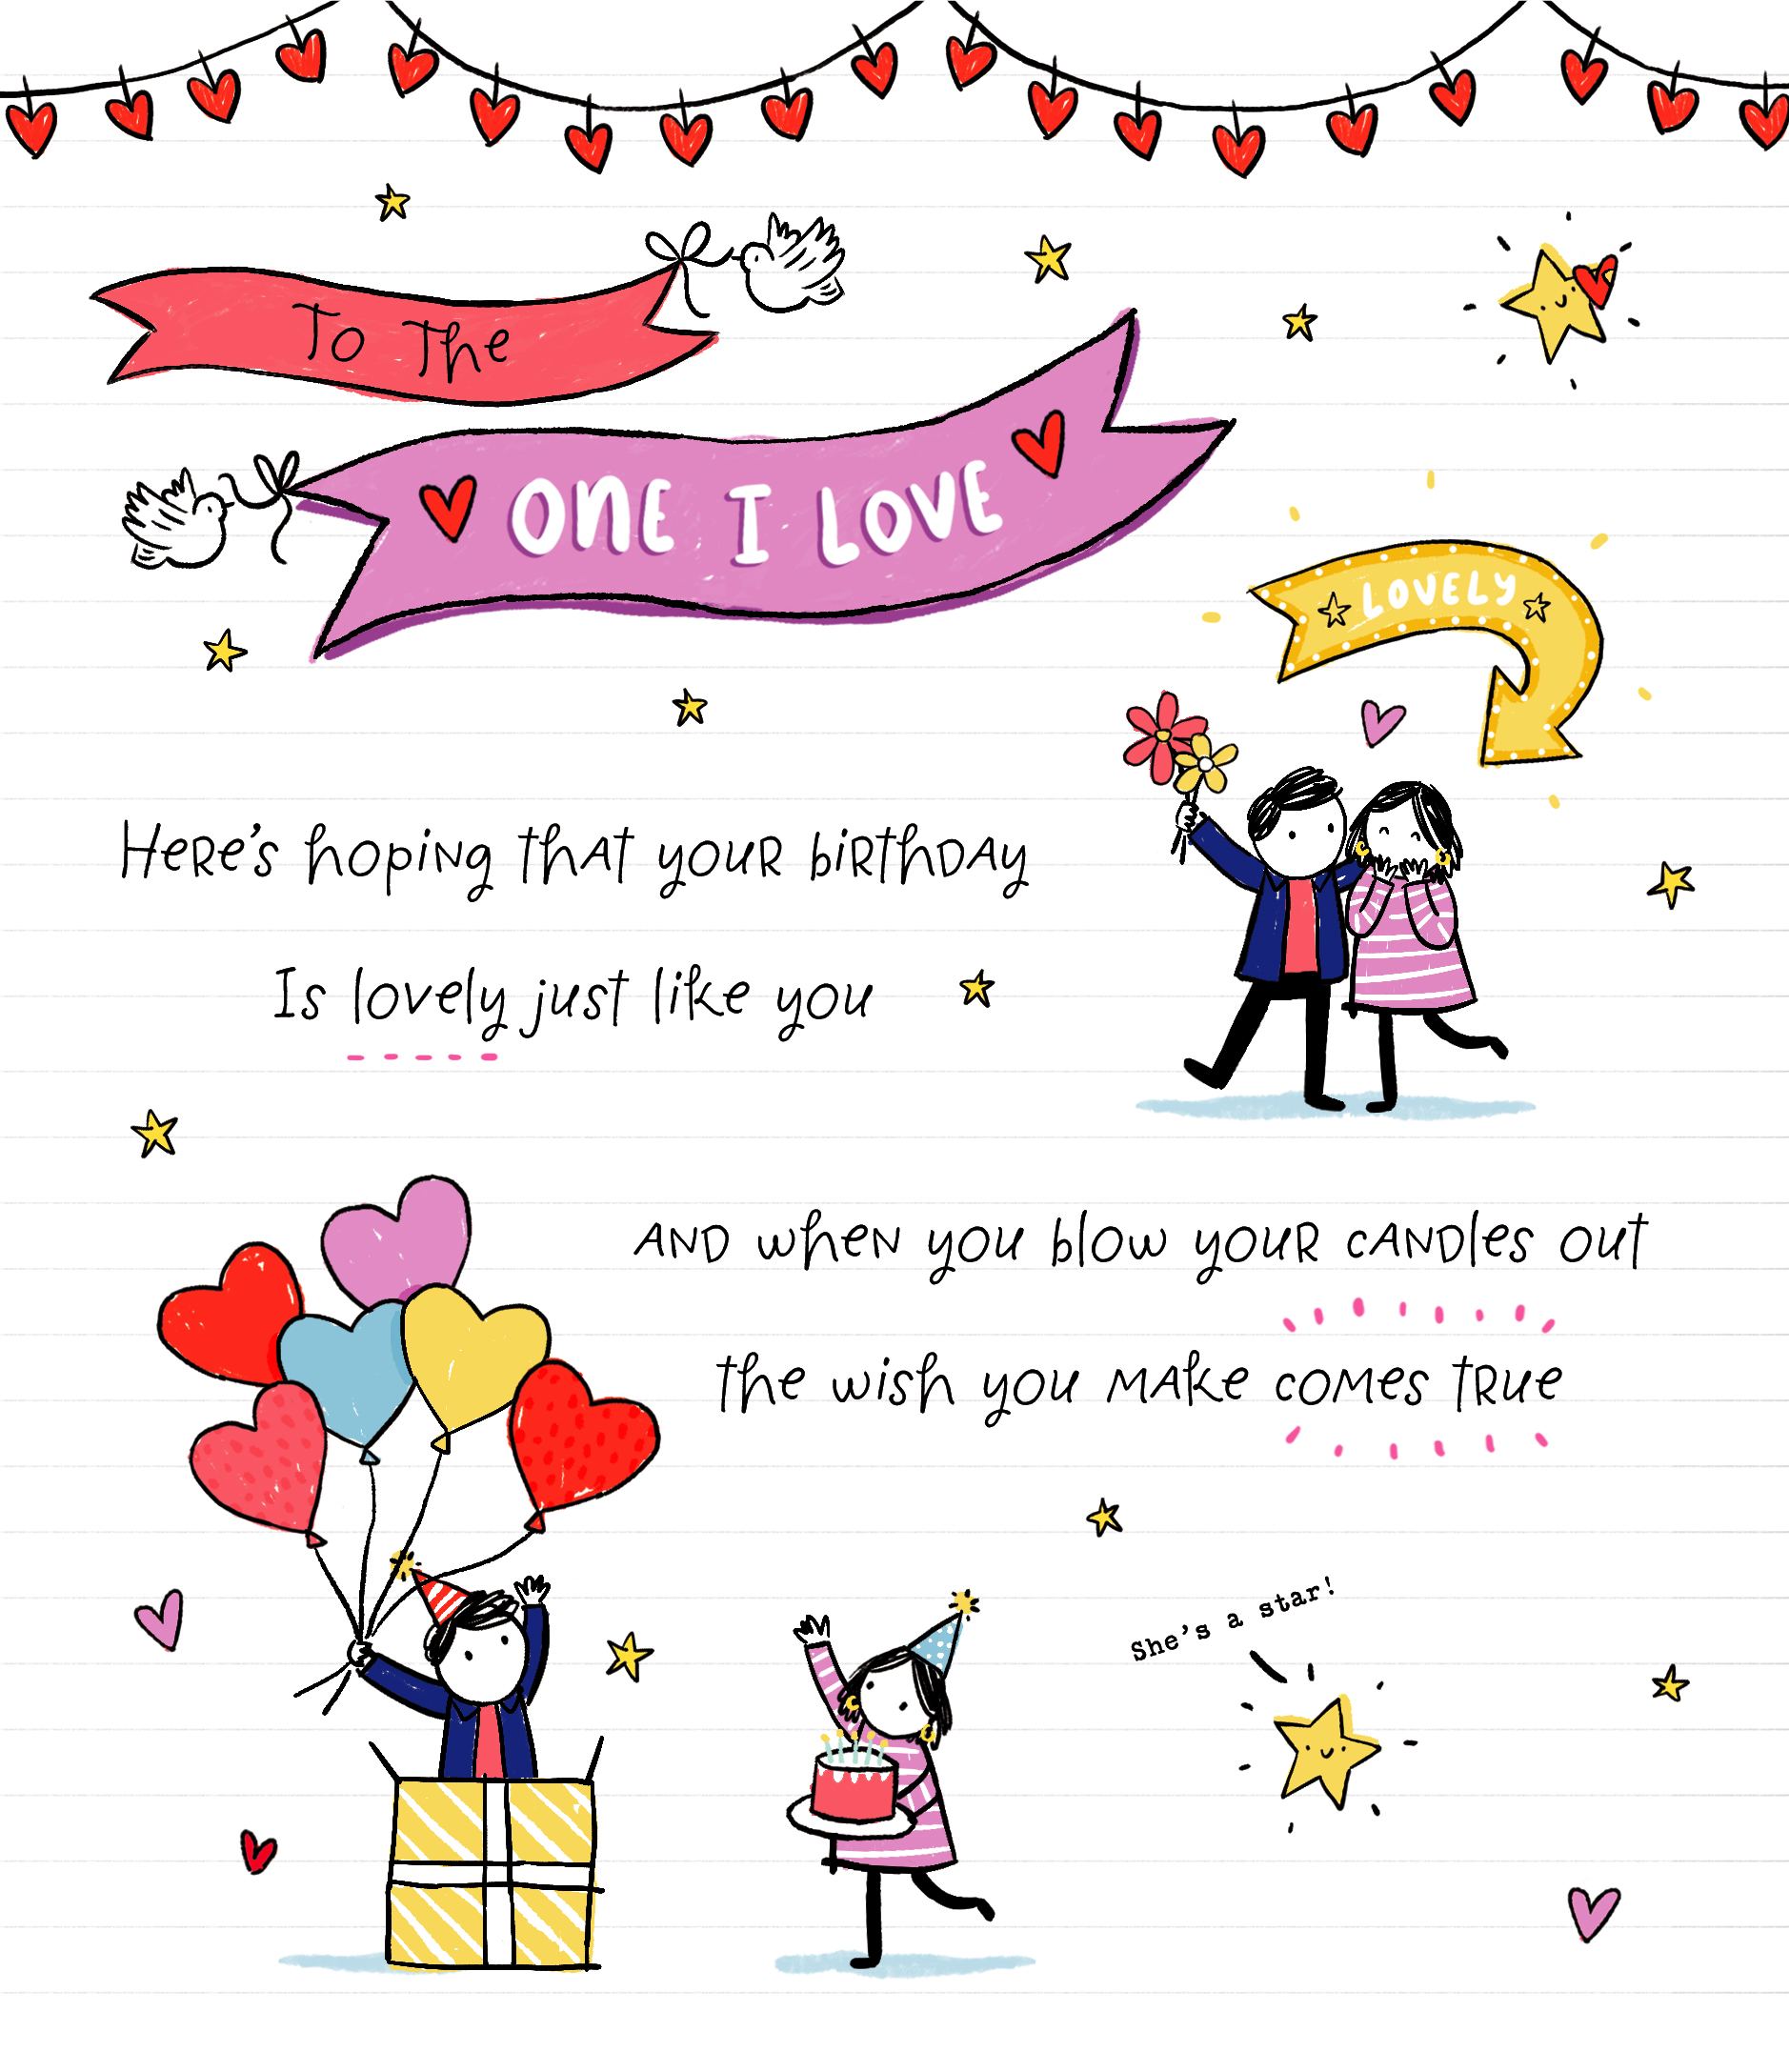 To The
ONE I LOVE
LOVELY
Here's hoping that your birthday
Is lovely just like you
And when you blow your candles out
the wish you make comes true
She's a star!